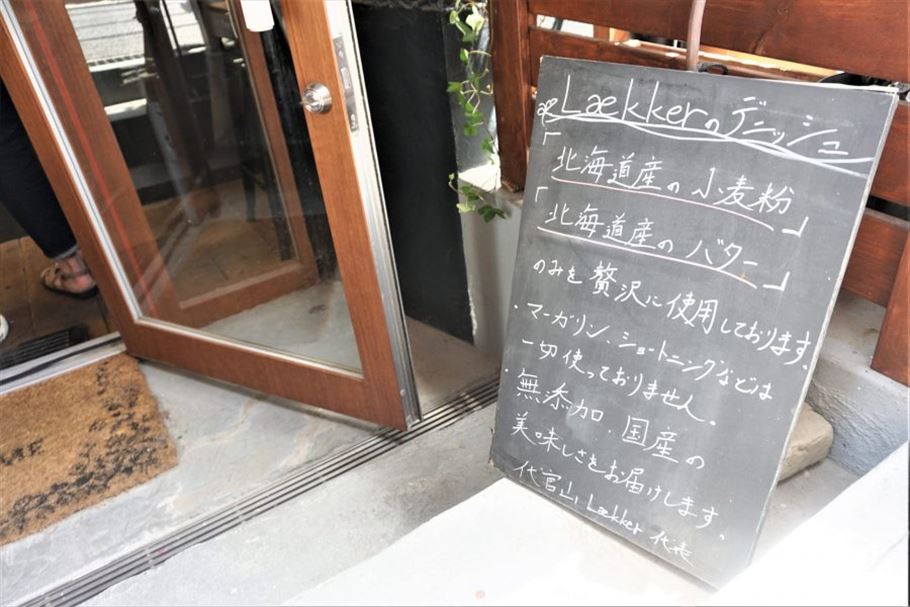 Lækkerのデニッシュ
「北海道産の小麦粉」
「北海道産のバター」
のみを贅沢に使用しております。
・マーガリン、ショートニングなどは
一切使っておりません。
・無添加、国産の
美味しさをお届けします。
代官山 Lækker 代表
ME